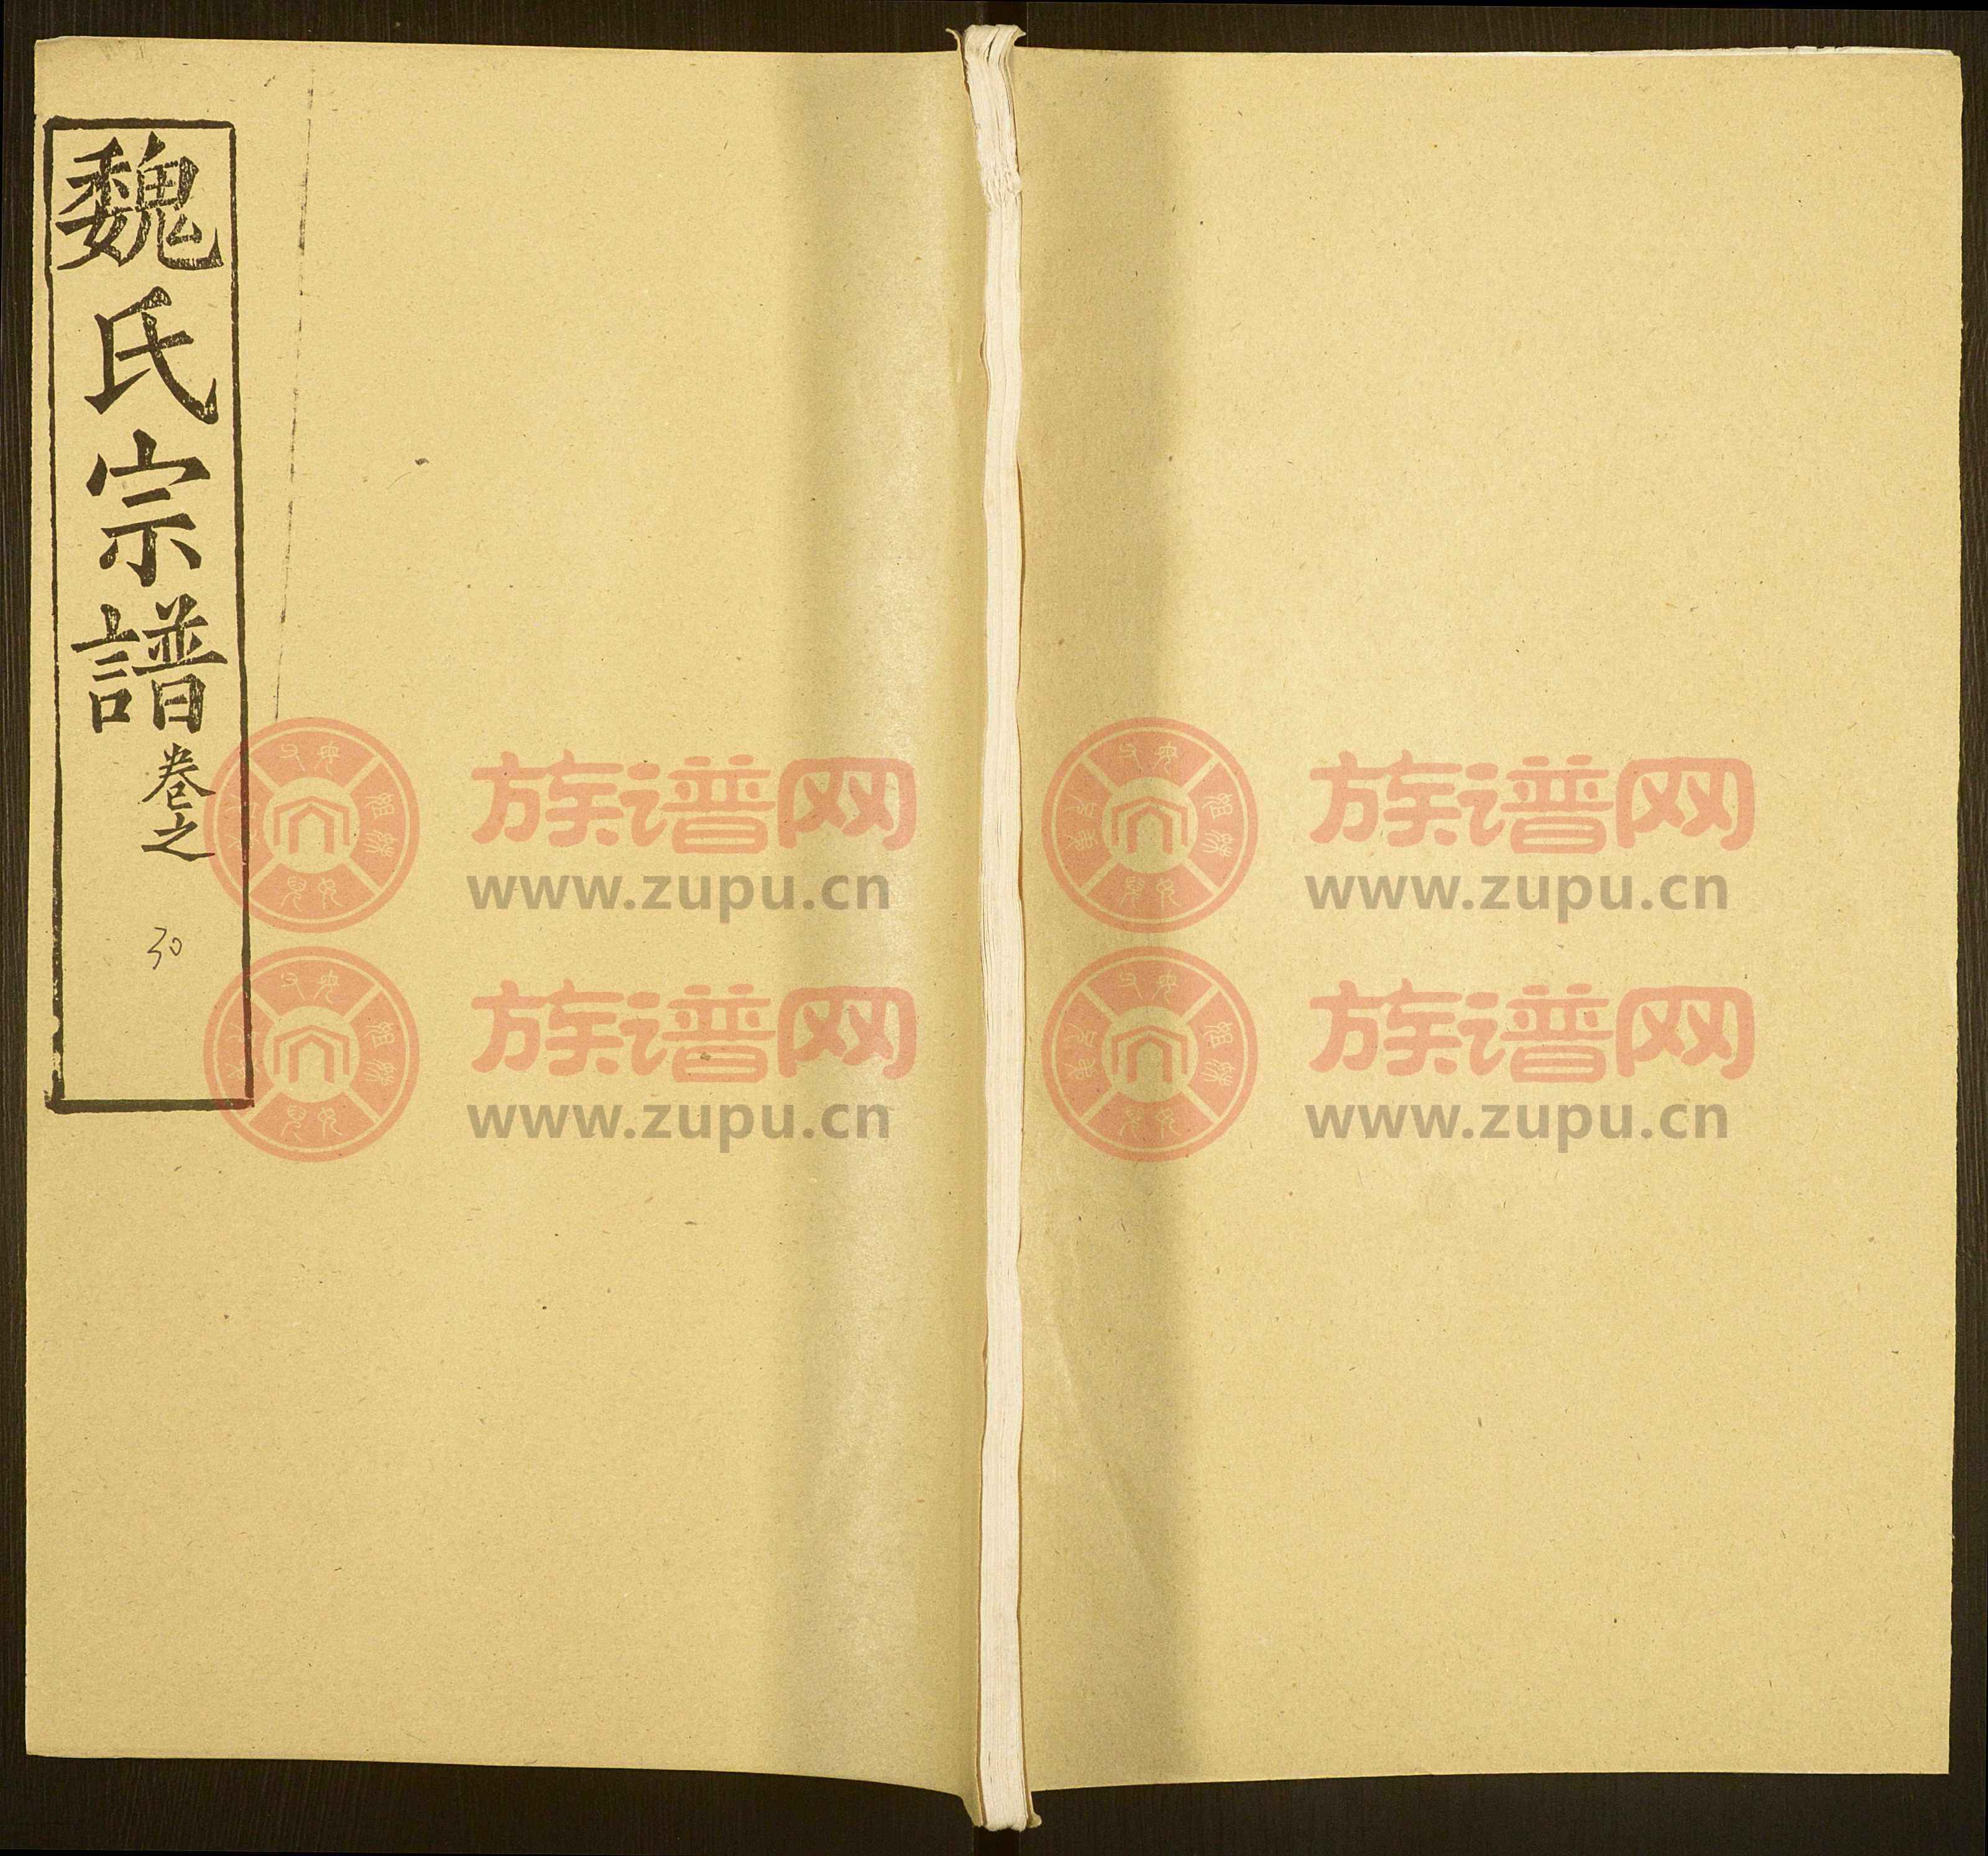 魏氏宗譜
卷之
30
族谱网
www.zupu.cn
族谱网
www.zupu.cn
族谱网
www.zupu.cn
族谱网
www.zupu.cn